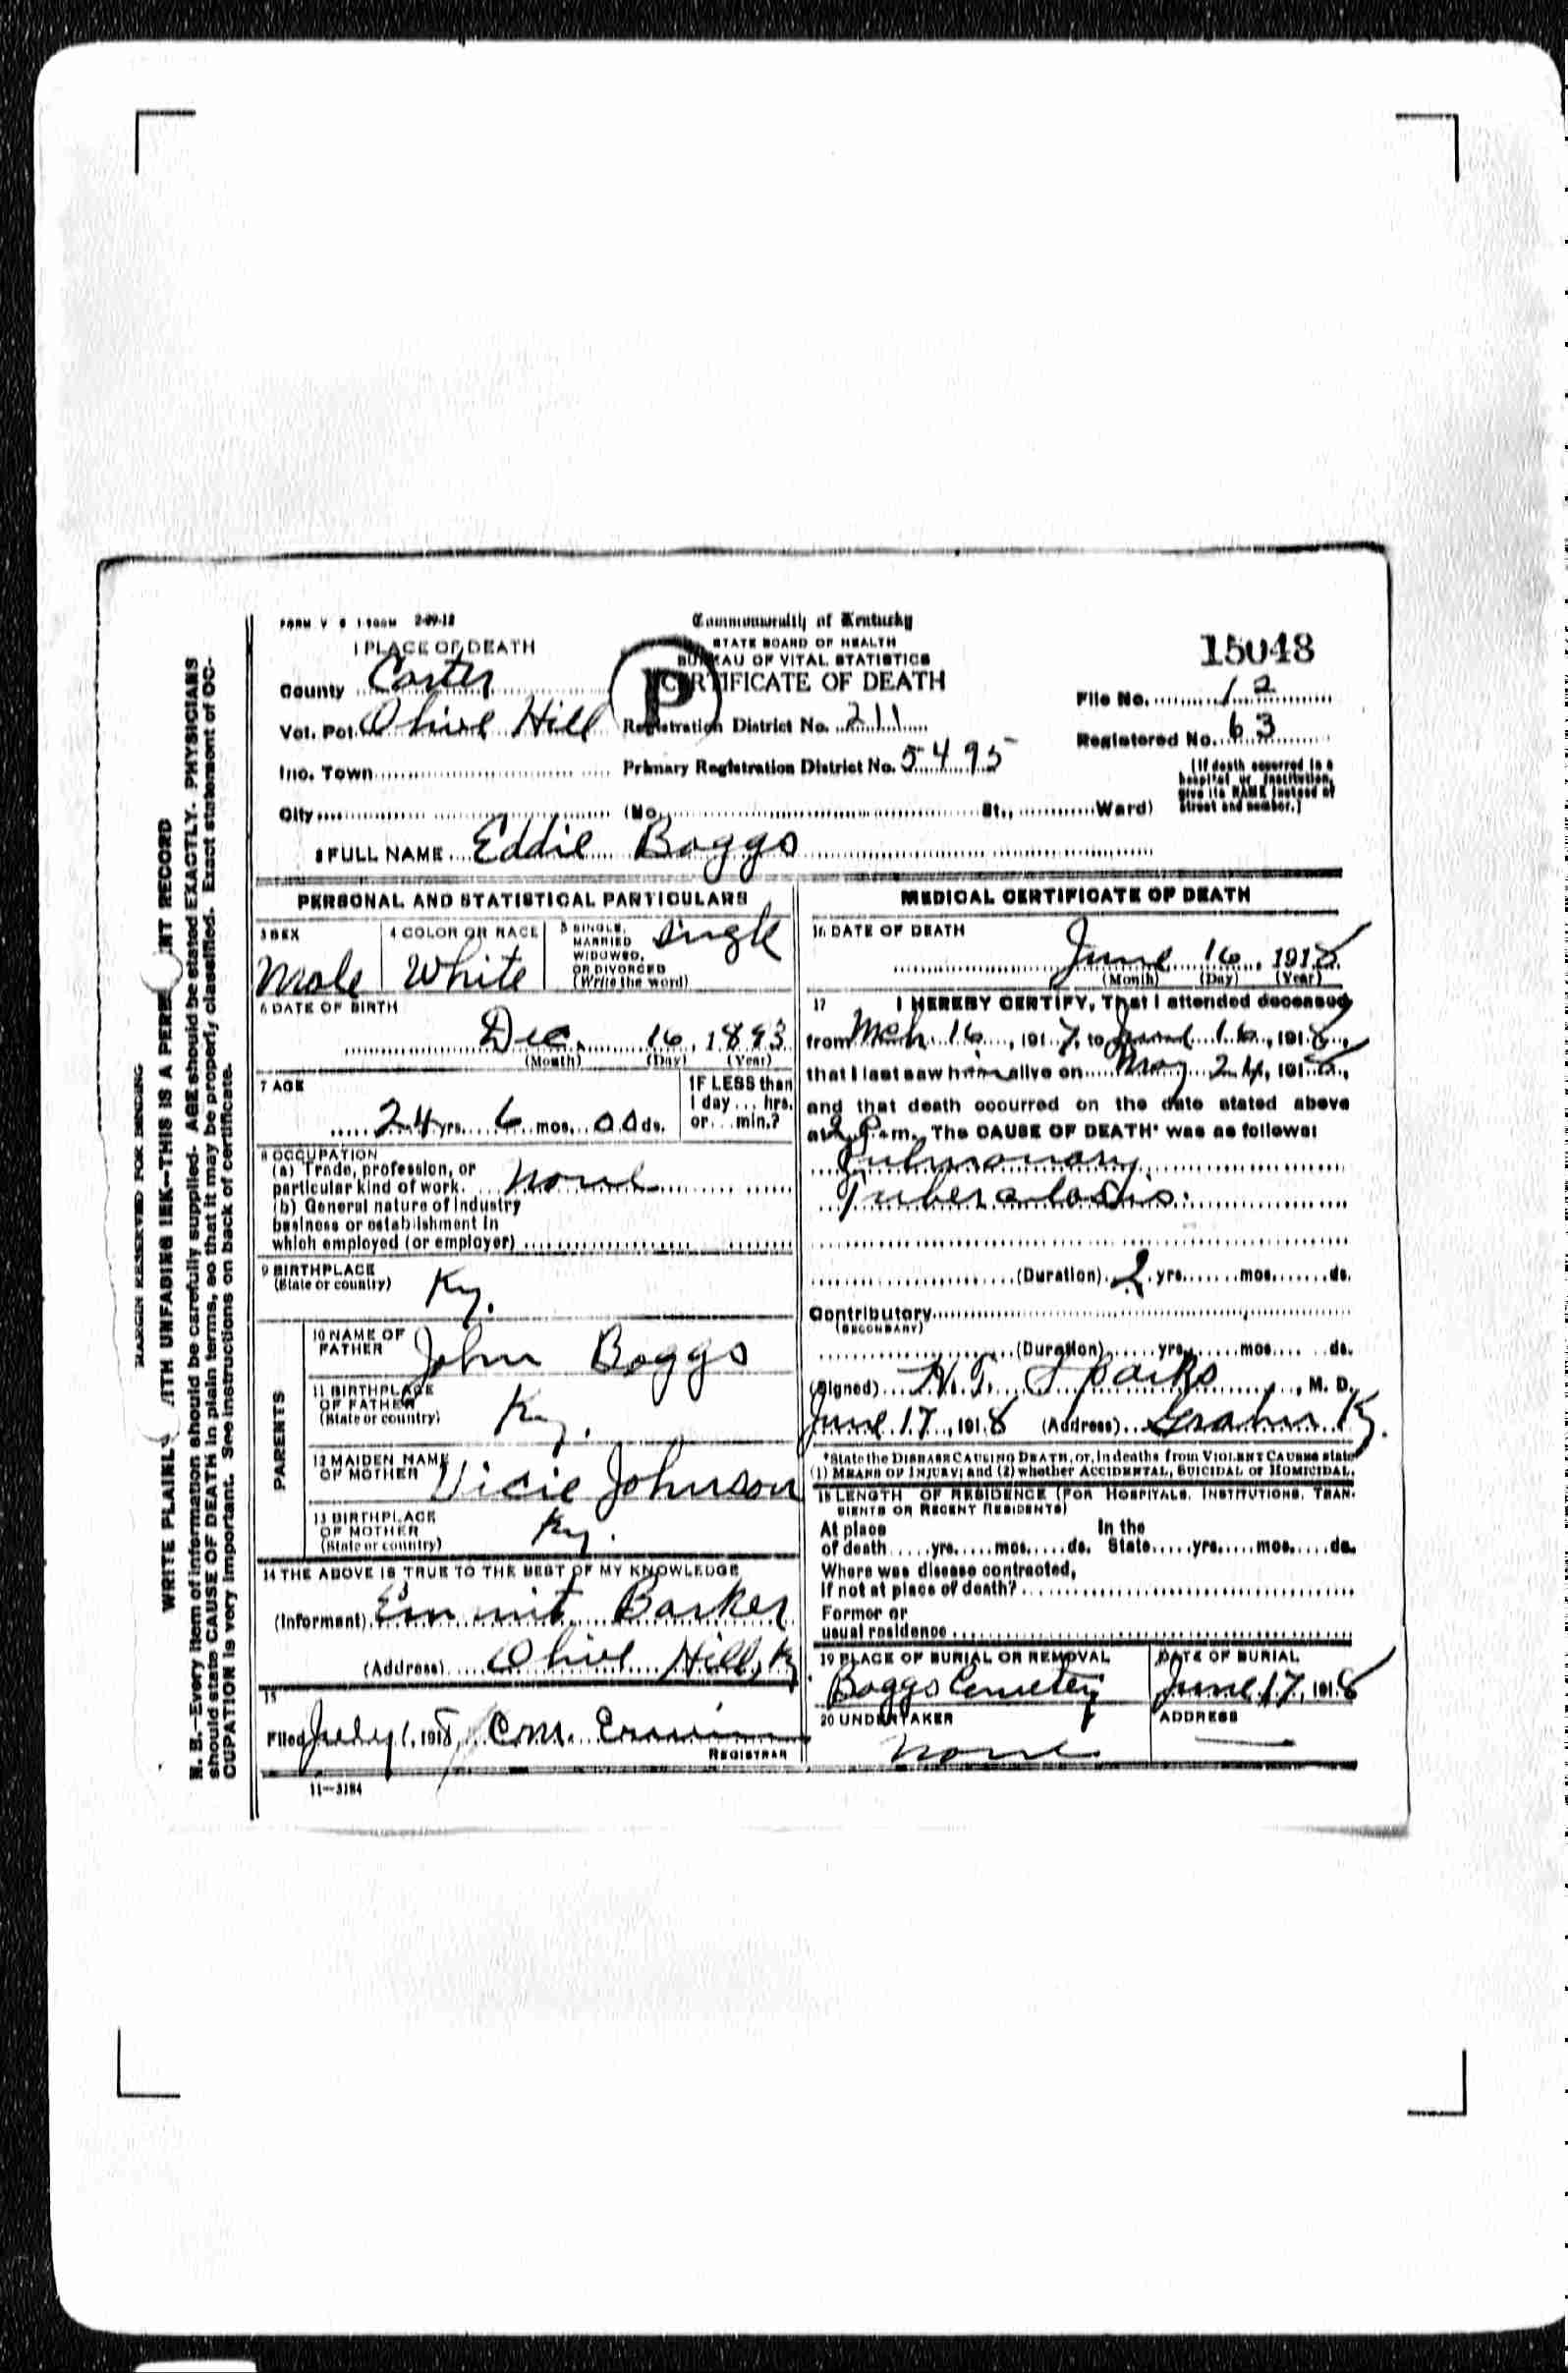 FORM V S 1-500M 2-09-12
Commonwealth of Kentucky
STATE BOARD OF HEALTH
BUREAU OF VITAL STATISTICS
CERTIFICATE OF DEATH
P
15048
1 PLACE OF DEATH
County Carter
File No. 12
Vot. Pct. Olive Hill Registration District No. 211
Registered No. 63
Inc. Town Primary Registration District No. 5495
[If death occurred in a hospital or institution, give its NAME instead of street and number.]
City (No. St., Ward)
2 FULL NAME Eddie Boggs
PERSONAL AND STATISTICAL PARTICULARS
3 SEX
Male
4 COLOR OR RACE
White
5 SINGLE, MARRIED WIDOWED, OR DIVORCED (Write the word)
Single
6 DATE OF BIRTH
Dec. 16, 1893
(Month) (Day) (Year)
7 AGE
24 yrs. 6 mos. 00 ds.
IF LESS than 1 day... hrs. or... min.?
8 OCCUPATION
(a) Trade, profession, or
particular kind of work. None
(b) General nature of industry
business or establishment in
which employed (or employer)
9 BIRTHPLACE
(State or country) Ky.
PARENTS
10 NAME OF FATHER John Boggs
11 BIRTHPLACE OF FATHER (State or country) Ky.
12 MAIDEN NAME OF MOTHER Vicie Johnson
13 BIRTHPLACE OF MOTHER (State or country) Ky.
14 THE ABOVE IS TRUE TO THE BEST OF MY KNOWLEDGE
(Informant) Emmit Barker
(Address) Olive Hill, Ky
15
Filed July 1, 1918, C.M. Erwin
REGISTRAR
11-3184
MEDICAL CERTIFICATE OF DEATH
16 DATE OF DEATH
June 16, 1918
(Month) (Day) (Year)
17 I HEREBY CERTIFY, That I attended deceased
from Mch 16, 1917, to June 16, 1918,
that I last saw him alive on May 24, 1918,
and that death occurred on the date stated above
at 2 P.m. The CAUSE OF DEATH* was as follows:
Pulmonary
Tuberculosis.
(Duration) 2 yrs. mos. ds.
Contributory
(SECONDARY)
(Duration) yrs. mos. ds.
(Signed) H.T. Sparks, M. D.
June 17, 1918 (Address) Grahn Ky.
*State the DISEASE CAUSING DEATH, or, in deaths from VIOLENT CAUSES state
(1) MEANS OF INJURY; and (2) whether ACCIDENTAL, SUICIDAL or HOMICIDAL.
18 LENGTH OF RESIDENCE (FOR HOSPITALS, INSTITUTIONS, TRAN-
SIENTS OR RECENT RESIDENTS)
At place In the
of death yrs. mos. ds. State yrs. mos. ds.
Where was disease contracted,
If not at place of death?
Former or
usual residence
19 PLACE OF BURIAL OR REMOVAL
Boggs Cemetery
DATE OF BURIAL
June 17, 1918
20 UNDERTAKER
None
ADDRESS
MARGIN RESERVED FOR BINDING
WRITE PLAINLY WITH UNFADING INK--THIS IS A PERMANENT RECORD
N. B.--Every item of information should be carefully supplied. AGE should be stated EXACTLY. PHYSICIANS
should state CAUSE OF DEATH in plain terms, so that it may be properly classified. Exact statement of OC-
CUPATION is very important. See instructions on back of certificate.